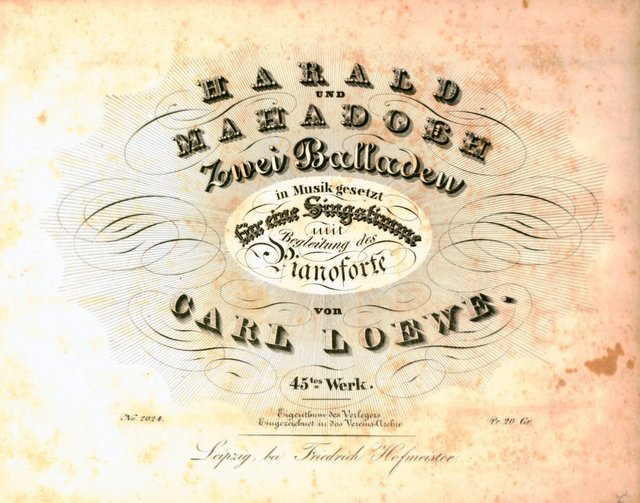 HARALD
UND
MAHADOEH
Zwei Balladen
in Musik gesetzt
für eine Singstimme
mit
Begleitung des
Pianoforte
von
CARL LOEWE.
45tes Werk.
No 2024.
Eigenthum des Verlegers
Eingezeichnet in das Vereins-Archiv
Pr. 20 Gr.
Leipzig, bei Friedrich Hofmeister.